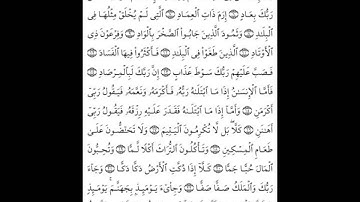 رَبُّكَ بِعَادٍ ۝ إِرَمَ ذَاتِ ٱلْعِمَادِ ۝ ٱلَّتِى لَمْ يُخْلَقْ مِثْلُهَا فِى
ٱلْبِلَٰدِ ۝ وَثَمُودَ ٱلَّذِينَ جَابُوا۟ ٱلصَّخْرَ بِٱلْوَادِ ۝ وَفِرْعَوْنَ ذِى
ٱلْأَوْتَادِ ۝ ٱلَّذِينَ طَغَوْا۟ فِى ٱلْبِلَٰدِ ۝ فَأَكْثَرُوا۟ فِيهَا ٱلْفَسَادَ ۝
فَصَبَّ عَلَيْهِمْ رَبُّكَ سَوْطَ عَذَابٍ ۝ إِنَّ رَبَّكَ لَبِٱلْمِرْصَادِ ۝
فَأَمَّا ٱلْإِنسَٰنُ إِذَا مَا ٱبْتَلَىٰهُ رَبُّهُۥ فَأَكْرَمَهُۥ وَنَعَّمَهُۥ فَيَقُولُ رَبِّىٓ
أَكْرَمَنِ ۝ وَأَمَّآ إِذَا مَا ٱبْتَلَىٰهُ فَقَدَرَ عَلَيْهِ رِزْقَهُۥ فَيَقُولُ رَبِّىٓ
أَهَٰنَنِ ۝ كَلَّا ۖ بَل لَّا تُكْرِمُونَ ٱلْيَتِيمَ ۝ وَلَا تَحَٰٓضُّونَ عَلَىٰ
طَعَامِ ٱلْمِسْكِينِ ۝ وَتَأْكُلُونَ ٱلتُّرَاثَ أَكْلًا لَّمًّا ۝ وَتُحِبُّونَ
ٱلْمَالَ حُبًّا جَمًّا ۝ كَلَّآ إِذَا دُكَّتِ ٱلْأَرْضُ دَكًّا دَكًّا ۝ وَجَآءَ
رَبُّكَ وَٱلْمَلَكُ صَفًّا صَفًّا ۝ وَجِا۟ىٓءَ يَوْمَئِذٍۭ بِجَهَنَّمَ ۚ يَوْمَئِذٍ